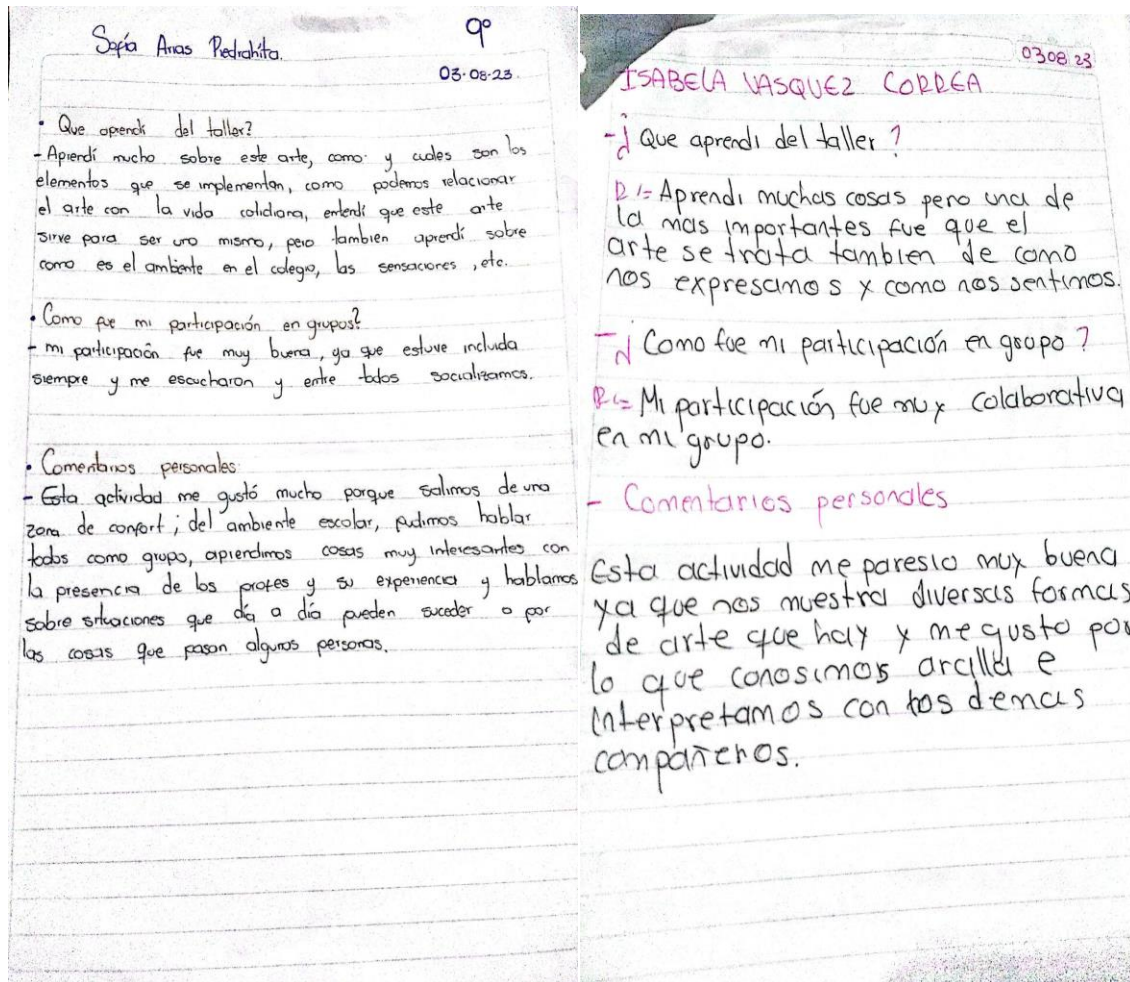 Sofía Arias Piedrahita.
9°
03-08-23.
• Que aprendí del taller?
- Aprendí mucho sobre este arte, como y cuales son los
elementos que se implementan, como podemos relacionar
el arte con la vida cotidiana, entendí que este arte
sirve para ser uno mismo, pero tambien aprendí sobre
como es el ambiente en el colegio, las sensaciones, etc.
• Como fue mi participación en grupos?
- mi participación fue muy buena, ya que estuve incluida
siempre y me escucharon y entre todos socializamos.
• Comentarios personales
- Esta actividad me gustó mucho porque salimos de una
zona de confort; del ambiente escolar, pudimos hablar
todos como grupo, aprendimos cosas muy interesantes con
la presencia de los profes y su experiencia y hablamos
sobre situaciones que día a día pueden suceder o por
las cosas que pasan algunas personas.
0308.23
ISABELA VASQUEZ CORREA
- ¿Que aprendi del taller?
R/= Aprendi muchas cosas pero una de
la mas importantes fue que el
arte se trata tanbien de como
nos expresamos y como nos sentimos.
- ¿Como fue mi participación en grupo?
R/= Mi participación fue muy colaborativa
en mi grupo.
- Comentarios personales
Esta actividad me paresio muy buena
ya que nos muestra diversas formas
de arte que hay y me gusto por
lo que conosimos arcilla e
interpretamos con los demas
compañeros.